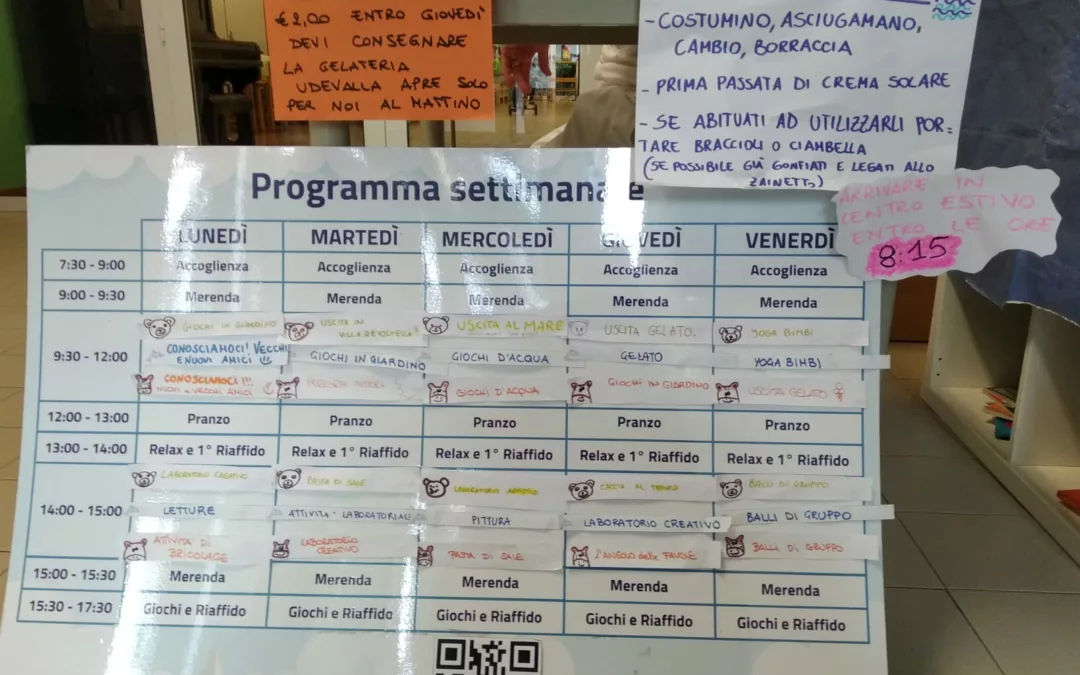 €2,00 ENTRO GIOVEDÌ
DEVI CONSEGNARE
LA GELATERIA
UDEVALLA APRE SOLO
PER NOI AL MATTINO
- COSTUMINO, ASCIUGAMANO,
CAMBIO, BORRACCIA
- PRIMA PASSATA DI CREMA SOLARE
- SE ABITUATI AD UTILIZZARLI POR=
TARE BRACCIOLI O CIAMBELLA
(SE POSSIBILE GIÀ GONFIATI E LEGATI ALLO
ZAINETTO)
ARRIVARE IN
CENTRO ESTIVO
ENTRO LE ORE
8:15
Programma settimanale
LUNEDÌ MARTEDÌ MERCOLEDÌ GIOVEDÌ VENERDÌ
7:30 - 9:00 Accoglienza Accoglienza Accoglienza Accoglienza Accoglienza
9:00 - 9:30 Merenda Merenda Merenda Merenda Merenda
GIOCHI IN GIARDINO USCITA IN USCITA AL MARE USCITA GELATO. YOGA BIMBI
9:30 - 12:00
CONOSCIAMOCI! VECCHI
E NUOVI AMICI GIOCHI IN GIARDINO GIOCHI D'ACQUA GELATO YOGA BIMBI
CONOSCIAMOCI!!!
NUOVI E VECCHI AMICI GIOCHI D'ACQUA GIOCHI IN GIARDINO USCITA GELATO
12:00 - 13:00 Pranzo Pranzo Pranzo Pranzo Pranzo
13:00 - 14:00 Relax e 1° Riaffido Relax e 1° Riaffido Relax e 1° Riaffido Relax e 1° Riaffido Relax e 1° Riaffido
LABORATORIO CREATIVO PASTA DI SALE LABORATORIO CACCIA AL TESORO BALLI DI GRUPPO
14:00 - 15:00 LETTURE ATTIVITA' LABORATORIALE PITTURA LABORATORIO CREATIVO BALLI DI GRUPPO
ATTIVITA' DI
BRICOLAGE LABORATORIO
CREATIVO PASTA DI SALE L'ANGOLO delle FAVOLE BALLI DI GRUPPO
15:00 - 15:30 Merenda Merenda Merenda Merenda Merenda
15:30 - 17:30 Giochi e Riaffido Giochi e Riaffido Giochi e Riaffido Giochi e Riaffido Giochi e Riaffido